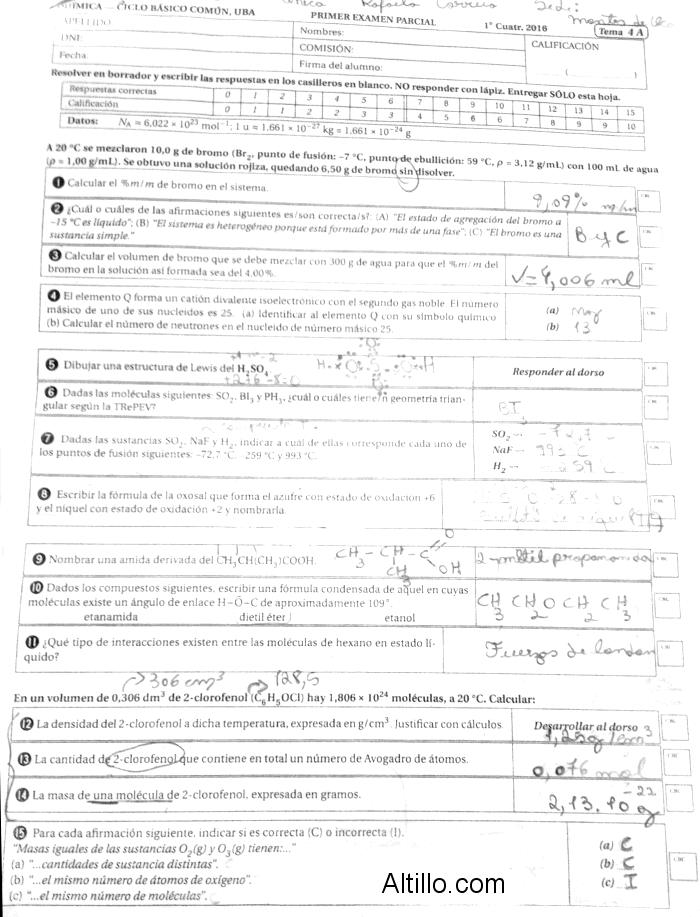 QUÍMICA – CICLO BÁSICO COMÚN, UBA
PRIMER EXAMEN PARCIAL
1° Cuatr. 2016
Sede:
Tema 4 A
APELLIDO
Nombres:
CALIFICACIÓN
DNI:
COMISIÓN:
Fecha:
Firma del alumno:
Resolver en borrador y escribir las respuestas en los casilleros en blanco. NO responder con lápiz. Entregar SÓLO esta hoja.
Respuestas correctas 0 1 2 3 4 5 6 7 8 9 10 11 12 13 14 15
Calificación 0 1 1 2 2 3 3 4 5 6 6 7 8 9 9 10
Datos: NA = 6,022 × 10²³ mol⁻¹; 1 u = 1,661 × 10⁻²⁷ kg = 1,661 × 10⁻²⁴ g
A 20 °C se mezclaron 10,0 g de bromo (Br₂, punto de fusión: –7 °C, punto de ebullición: 59 °C, ρ = 3,12 g/mL) con 100 mL de agua
(ρ = 1,00 g/mL). Se obtuvo una solución rojiza, quedando 6,50 g de bromo sin disolver.
❶ Calcular el %m/m de bromo en el sistema.
9,09% m/m
❷ ¿Cuál o cuáles de las afirmaciones siguientes es/son correcta/s?: (A) "El estado de agregación del bromo a
–15 °C es líquido"; (B) "El sistema es heterogéneo porque está formado por más de una fase"; (C) "El bromo es una
sustancia simple."
B y C
❸ Calcular el volumen de bromo que se debe mezclar con 300 g de agua para que el %m/m del
bromo en la solución así formada sea del 4,00%.
V=4,006 ml
❹ El elemento Q forma un catión divalente isoelectrónico con el segundo gas noble. El número
másico de uno de sus nucleidos es 25. (a) Identificar al elemento Q con su símbolo químico
(b) Calcular el número de neutrones en el nucleido de número másico 25.
(a) Mg
(b) 13
❺ Dibujar una estructura de Lewis del H₂SO₄
Responder al dorso
❻ Dadas las moléculas siguientes: SO₂, BI₃ y PH₃, ¿cuál o cuáles tiene/n geometría trian-
gular según la TRePEV?
BI₃
❼ Dadas las sustancias SO₂, NaF y H₂, indicar a cuál de ellas corresponde cada uno de
los puntos de fusión siguientes: –72,7 °C, –259 °C y 993 °C.
SO₂ -- -72,7
NaF -- 993 C
H₂ --
❽ Escribir la fórmula de la oxosal que forma el azufre con estado de oxidación +6
y el níquel con estado de oxidación +2 y nombrarla.
❾ Nombrar una amida derivada del CH₃CH(CH₃)COOH.
CH₃ – CH – C
O
OH
CH₃
❿ Dados los compuestos siguientes, escribir una fórmula condensada de aquel en cuyas
moléculas existe un ángulo de enlace H–O–C de aproximadamente 109°.
etanamida dietil éter etanol
CH₃ CH₂ O CH₂ CH₃
⓫ ¿Qué tipo de interacciones existen entre las moléculas de hexano en estado lí-
quido?
Fuerzas de london
306 cm³
128,5
En un volumen de 0,306 dm³ de 2-clorofenol (C₆H₅OCl) hay 1,806 × 10²⁴ moléculas, a 20 °C. Calcular:
⓬ La densidad del 2-clorofenol a dicha temperatura, expresada en g/cm³. Justificar con cálculos.
Desarrollar al dorso
1,25g/cm³
⓭ La cantidad de 2-clorofenol que contiene en total un número de Avogadro de átomos.
0,076 mol
⓮ La masa de una molécula de 2-clorofenol, expresada en gramos.
2,13.10⁻²² g
⓯ Para cada afirmación siguiente, indicar si es correcta (C) o incorrecta (I).
"Masas iguales de las sustancias O₂(g) y O₃(g) tienen:..."
(a) "...cantidades de sustancia distintas".
(b) "...el mismo número de átomos de oxígeno".
(c) "...el mismo número de moléculas".
(a) C
(b) C
(c) I
Altillo.com